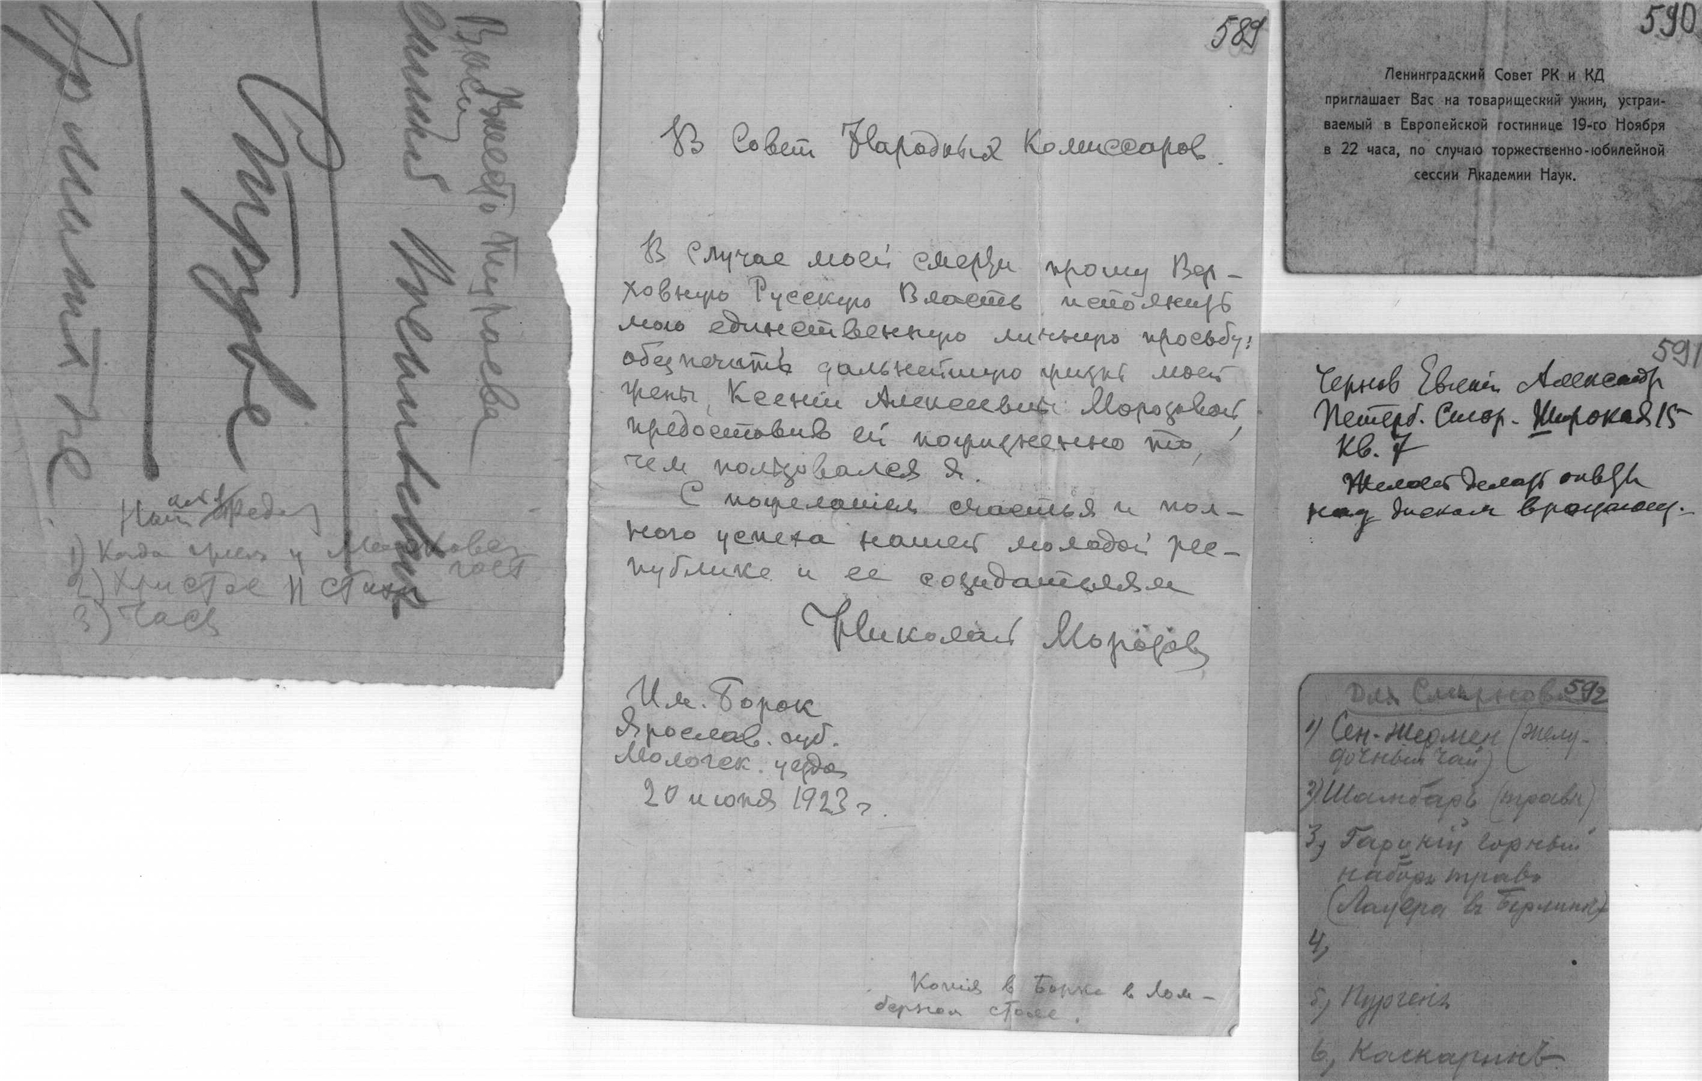 Вместо Тураева
Струве
1) Когда
2) Христос и
3) Часы
589
В Совет Народных Комиссаров.
В случае моей смерти прошу Вер-
ховную Русскую Власть исполнить
мою единственную личную просьбу:
обезпечить дальнейшую жизнь моей
жены, Ксении Алексеевны Морозовой,
предоставив ей пожизненно то,
чем пользовался я.
С пожеланием счастья и пол-
ного успеха нашей молодой рес-
публике и ее созидателям
Николай Морозов
Им. Борок
Ярослав. губ.
Мологск. уезда
20 июня 1923 г.
Копія в Борке в лом-
берном столе.
590
Ленинградский Совет РК и КД
приглашает Вас на товарищеский ужин, устраи-
ваемый в Европейской гостинице 19-го Ноября
в 22 часа, по случаю торжественно-юбилейной
сессии Академии Наук.
591
Чернов Евгений Александр
Петерб. Стор. Широкая 15
Кв. 7
Желает делать опыты
над диском вращающ.
592
Для Смирнова
1) Сен-Жермен (желу-
дочный чай)
2) Шамбаръ (травы)
3) Гарцкій горный
наборъ травъ
(Лауера въ Берлинѣ)
4)
5) Пургенъ
6) Каскаринъ